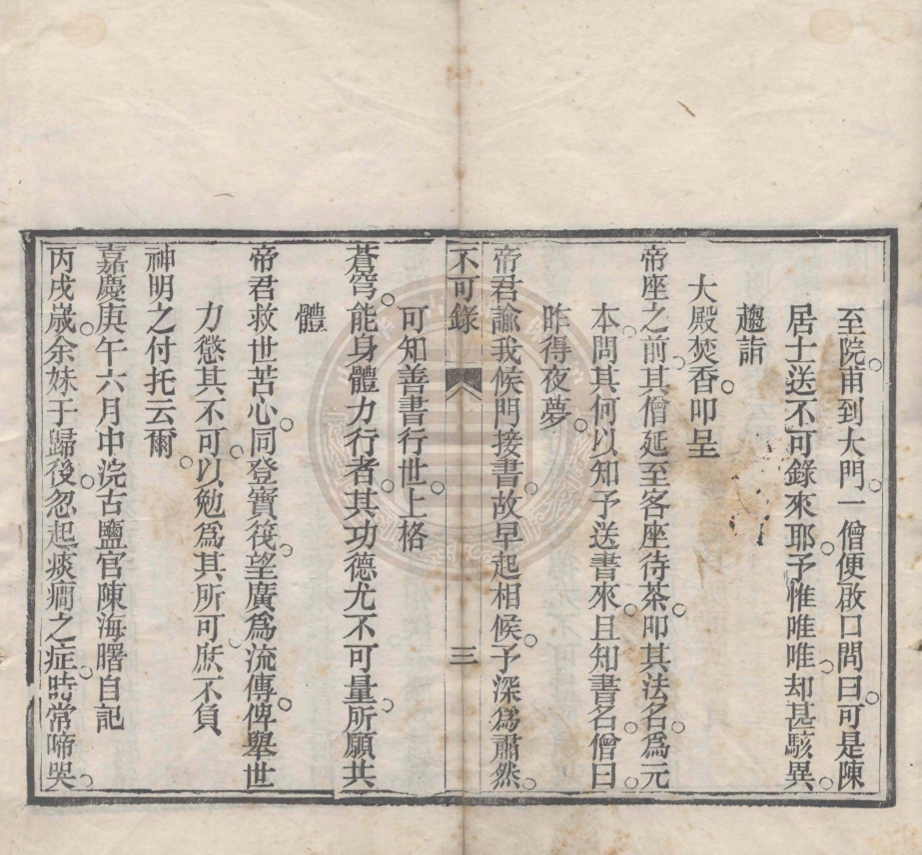 至院。甫到大門。一僧便啟口問曰。可是陳
居士送不可錄來耶。予惟唯唯。却甚駭異。
趨詣
大殿焚香。叩呈
帝座之前。其僧延至客座待茶。叩其法名。為元
本。問其何以知予送書來。且知書名。僧曰。
昨得夜夢。
帝君諭我候門接書。故早起相候。予深為肅然。
不可錄
三
可知善書行世。上格
蒼穹。能身體力行者。其功德尤不可量。所願共
體
帝君救世苦心。同登寶筏。望廣為流傳。俾舉世
力懲其不可。以勉為其所可。庶不負
神明之付托云爾。
嘉慶庚午六月中浣古鹽官陳海曙自記
丙戌歲。余妹于歸後。忽起痰癇之症。時常啼哭。